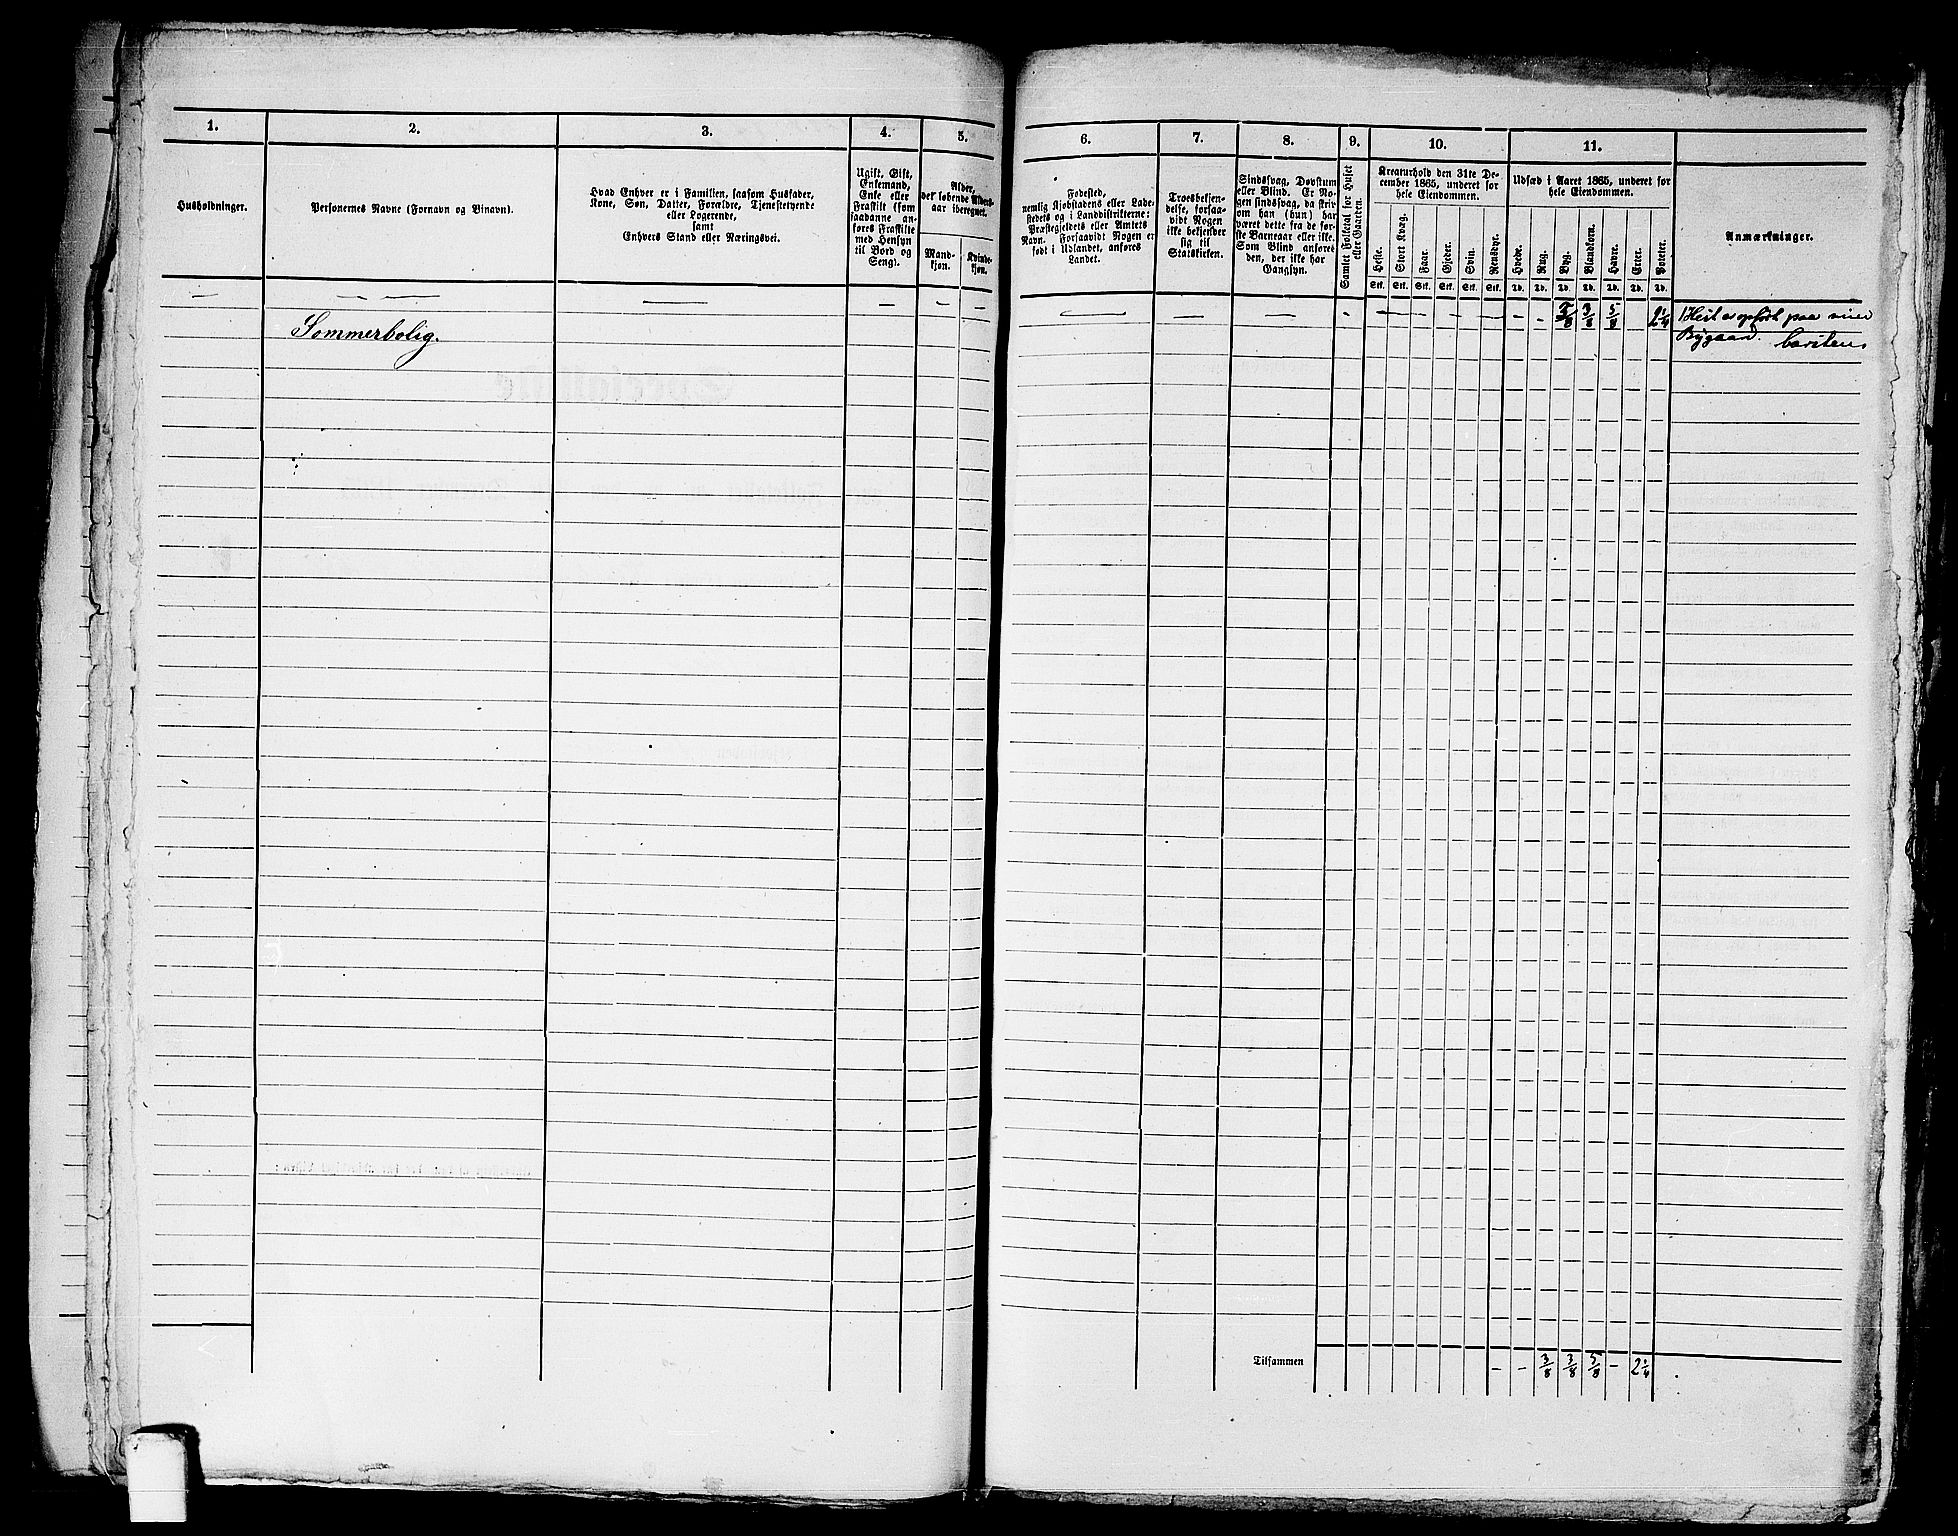 1.
2.
3.
4.
5.
6.
7.
8.
9.
10.
11.
Husholdninger.
Personernes Navne (Fornavn og Binavn).
Hvad Enhver er i Familien, saasom Husfader,
Kone, Søn, Datter, Forældre, Tjenestetyende
eller Logerende,
samt
Enhvers Stand eller Næringsvei.
Ugift, Gift,
Enkemand,
Enke eller
Fraskilt (som
saadanne an-
føres Fraskilte
med Hensyn
til Bord og
Seng).
Alder,
det løbende Alders-
aar iberegnet.
Mand-
kjøn.
Kvinde-
kjøn.
Fødested,
nemlig Kjøbstadens eller Lade-
stedets og i Landdistrikterne:
Præstegjeldets eller Amtets
Navn. Forsaavidt Nogen er
født i Udlandet, anføres
Landet.
Troesbekjen-
delse, forsaa-
vidt Nogen
ikke bekjender
sig til
Statskirken.
Sindssvag, Døvstum
eller Blind. Er No-
gen sindssvag, da skriv
om han (hun) har
været dette fra de før-
ste Barneaar eller ikke.
Som Blind anføres
den, der ikke har
Gangsyn.
Samlet Folketal for Huset
eller Gaarden.
Kreaturhold den 31te De-
cember 1865, underet for
hele Eiendommen.
Heste.
Stort Kvæg.
Faar.
Gjeder.
Svin.
Rensdyr.
Stk. Stk. Stk. Stk. Stk. Stk.
Udsæd i Aaret 1865, underet for
hele Eiendommen.
Hvede.
Rug.
Byg.
Blandkorn.
Havre.
Erter.
Poteter.
Td. Td. Td. Td. Td. Td. Td.
Anmærkninger.
— — — — — — — — — — — — — — — — — — 3/8 3/8 5/8 2 1/4 1 Hest er opført paa min
Sommerbolig.
Bygaard. Carstens
Tilsammen - - 3/8 3/8 5/8 - 2 1/4